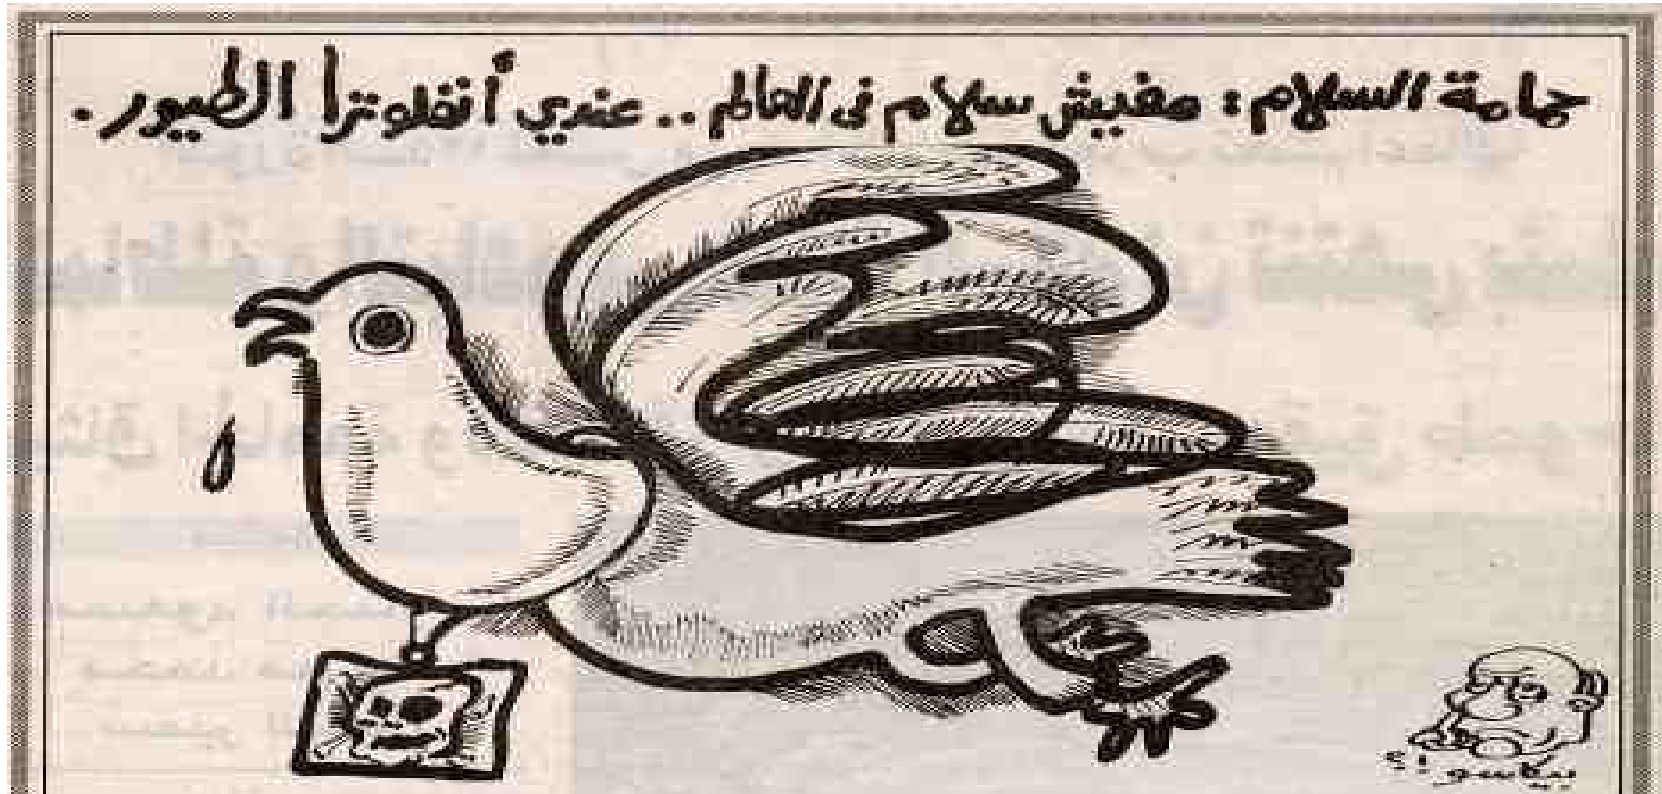 حمامة السلام : مفيش سلام فى العالم .. عندي أنفلونزا الطيور .
بيكاسو !؟